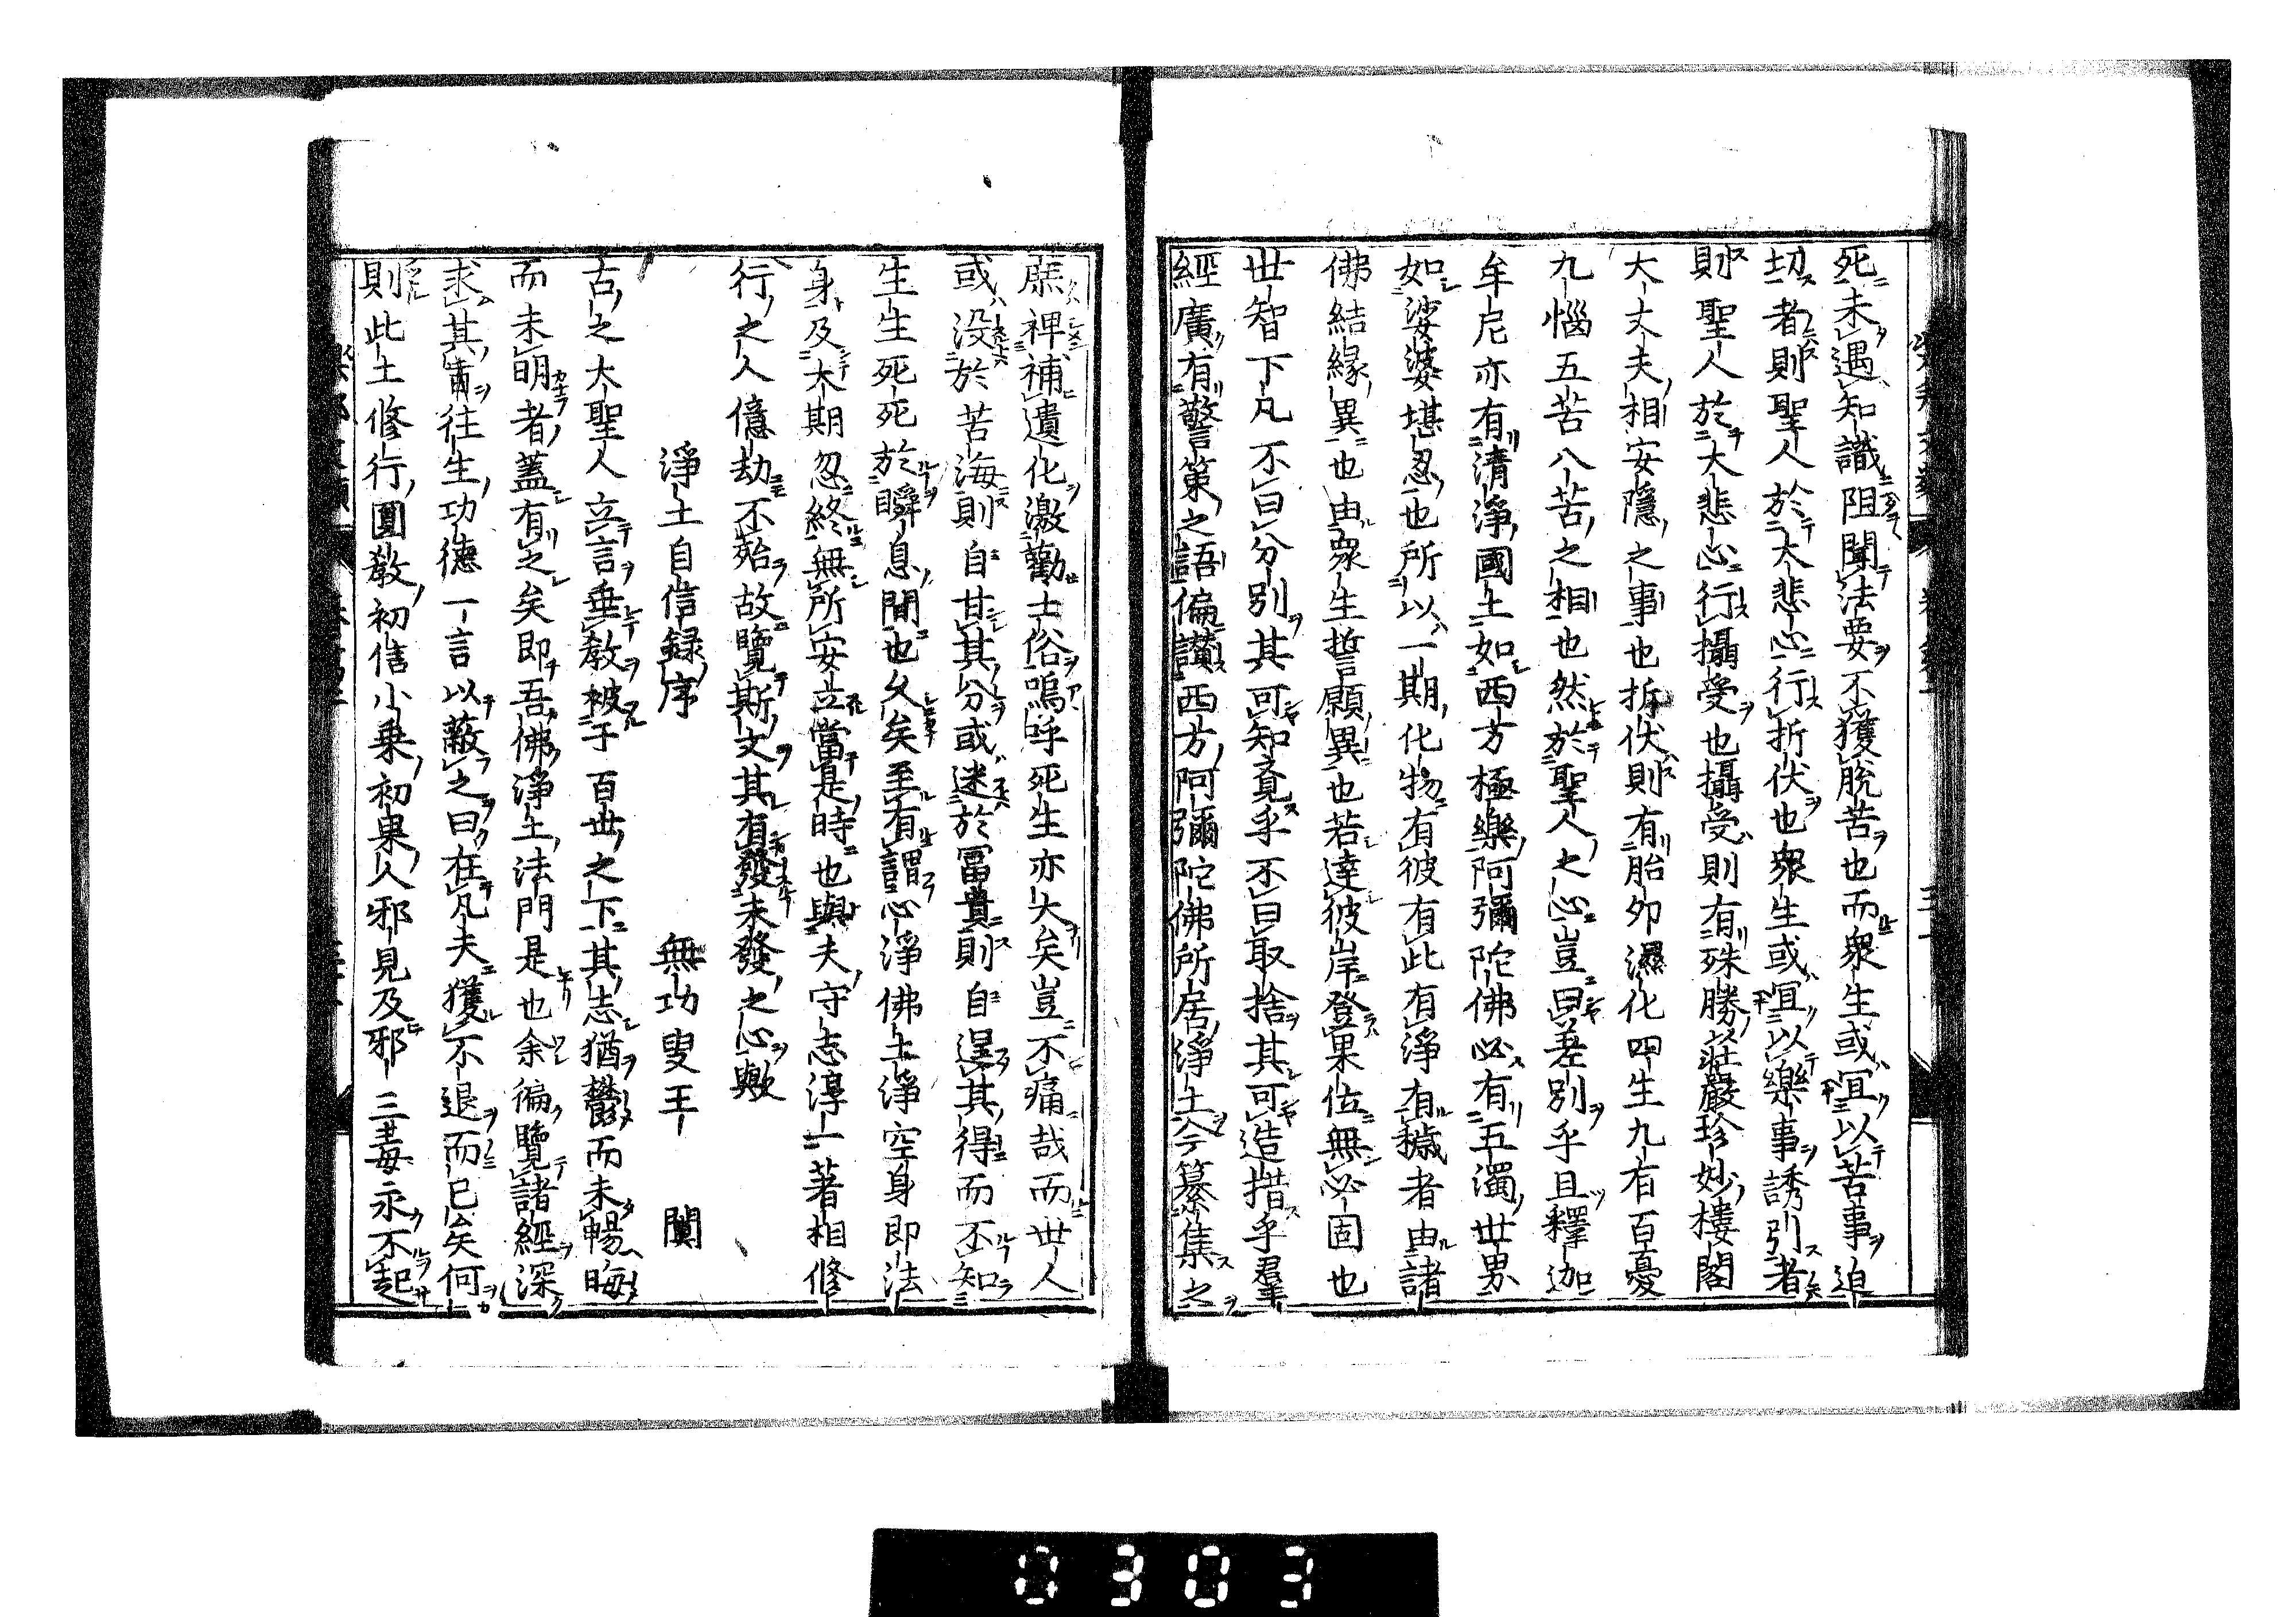 死未遇知識阻聞法要不獲脫苦也而衆生或冝以苦事迫
切者則聖人於大悲心行折伏也衆生或冝以樂事誘引者
則聖人於大悲心行攝受也攝受則有殊勝莊嚴珍妙樓閣
大丈夫相安隱之事也折伏則有胎卵濕化四生九有百憂
九惱五苦八苦之相也然於聖人之心豈曰差別乎且釋迦
牟尼亦有清淨國土如西方極樂阿彌陀佛必有五濁世界
如娑婆堪忍也所以一期化物有彼有此有淨有穢者由諸
佛結緣異也由衆生誓願異也若達彼岸登果位無必固也
世智下凡不曰分別其可知覔乎不曰取捨其可造措乎羣
經廣有警策之語偏讃西方阿彌陀佛所居淨土今纂集之
庶裨補遺化激勸士俗嗚呼死生亦大矣豈不痛哉而世人
或没於苦海則自甘其分或迷於冨貴則自逞其得而不知
生生死死於瞬息間也久矣至有謂心淨佛土淨空身即法
身及大期忽終無所安立當是時也與夫守志淳一著相修
行之人億劫不殆故覽斯文其有發未發之心歟
淨土自信録序　無功叟王　闐
古之大聖人立言垂教被于百世之下其志猶欝而未暢晦
而未明者蓋有之矣即吾佛淨土法門是也余徧覽諸經深
求其旨往生功德一言以蔽之曰在凡夫獲不退而已矣何
則此土修行圓教初信小乘初果人邪見及邪三毒永不起
0303